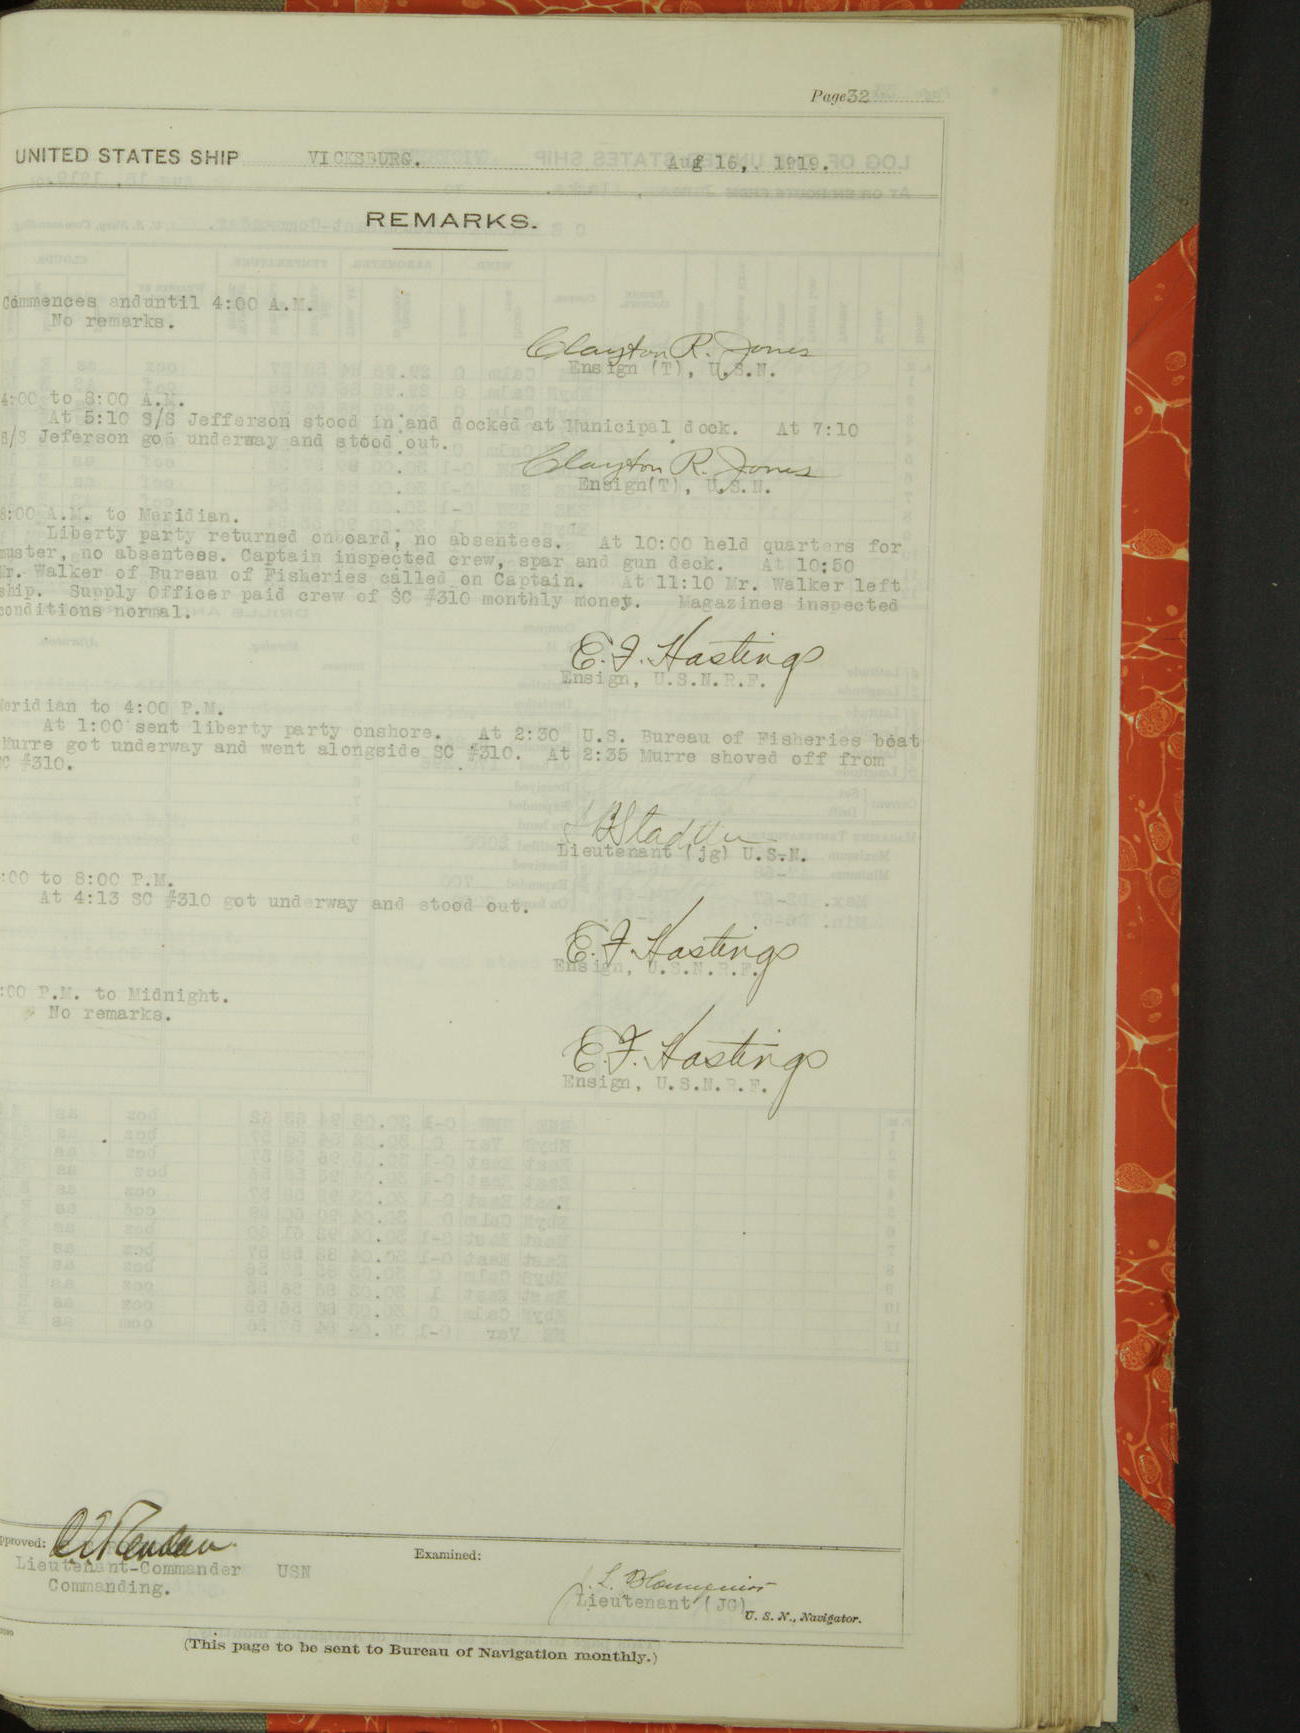 Page 32
UNITED STATES SHIP VICKSBURG. Aug 16, 1919.
REMARKS.
Commences anduntil 4:00 A.M.
No remarks.
Clayton R. Jones
Ensign (T), U.S.N.
4:00 to 8:00 A.M.
At 5:10 S/S Jefferson stood in and docked at Municipal dock. At 7:10
S/S Jeferson got underway and stood out.
Clayton R. Jones
Ensign(T), U.S.N.
8:00 A.M. to Meridian.
Liberty party returned onboard, no absentees. At 10:00 held quarters for
muster, no absentees. Captain inspected crew, spar and gun deck. At 10:50
Mr. Walker of Bureau of Fisheries called on Captain. At 11:10 Mr. Walker left
ship. Supply Officer paid crew of SC #310 monthly money. Magazines inspected
conditions normal.
E. F. Hastings
Ensign, U.S.N.R.F.
Meridian to 4:00 P.M.
At 1:00 sent liberty party onshore. At 2:30 U.S. Bureau of Fisheries boat
Murre got underway and went alongside SC #310. At 2:35 Murre shoved off from
SC #310.
Lieutenant (jg) U.S.N.
:00 to 8:00 P.M.
At 4:13 SC #310 got underway and stood out.
E. F. Hastings
Ensign, U.S.N.R.F.
:00 P.M. to Midnight.
No remarks.
E. F. Hastings
Ensign, U.S.N.R.F.
pproved:
Lieutenant-Commander USN
Commanding.
Examined:
Lieutenant (JG)
U. S. N., Navigator.
(This page to be sent to Bureau of Navigation monthly.)